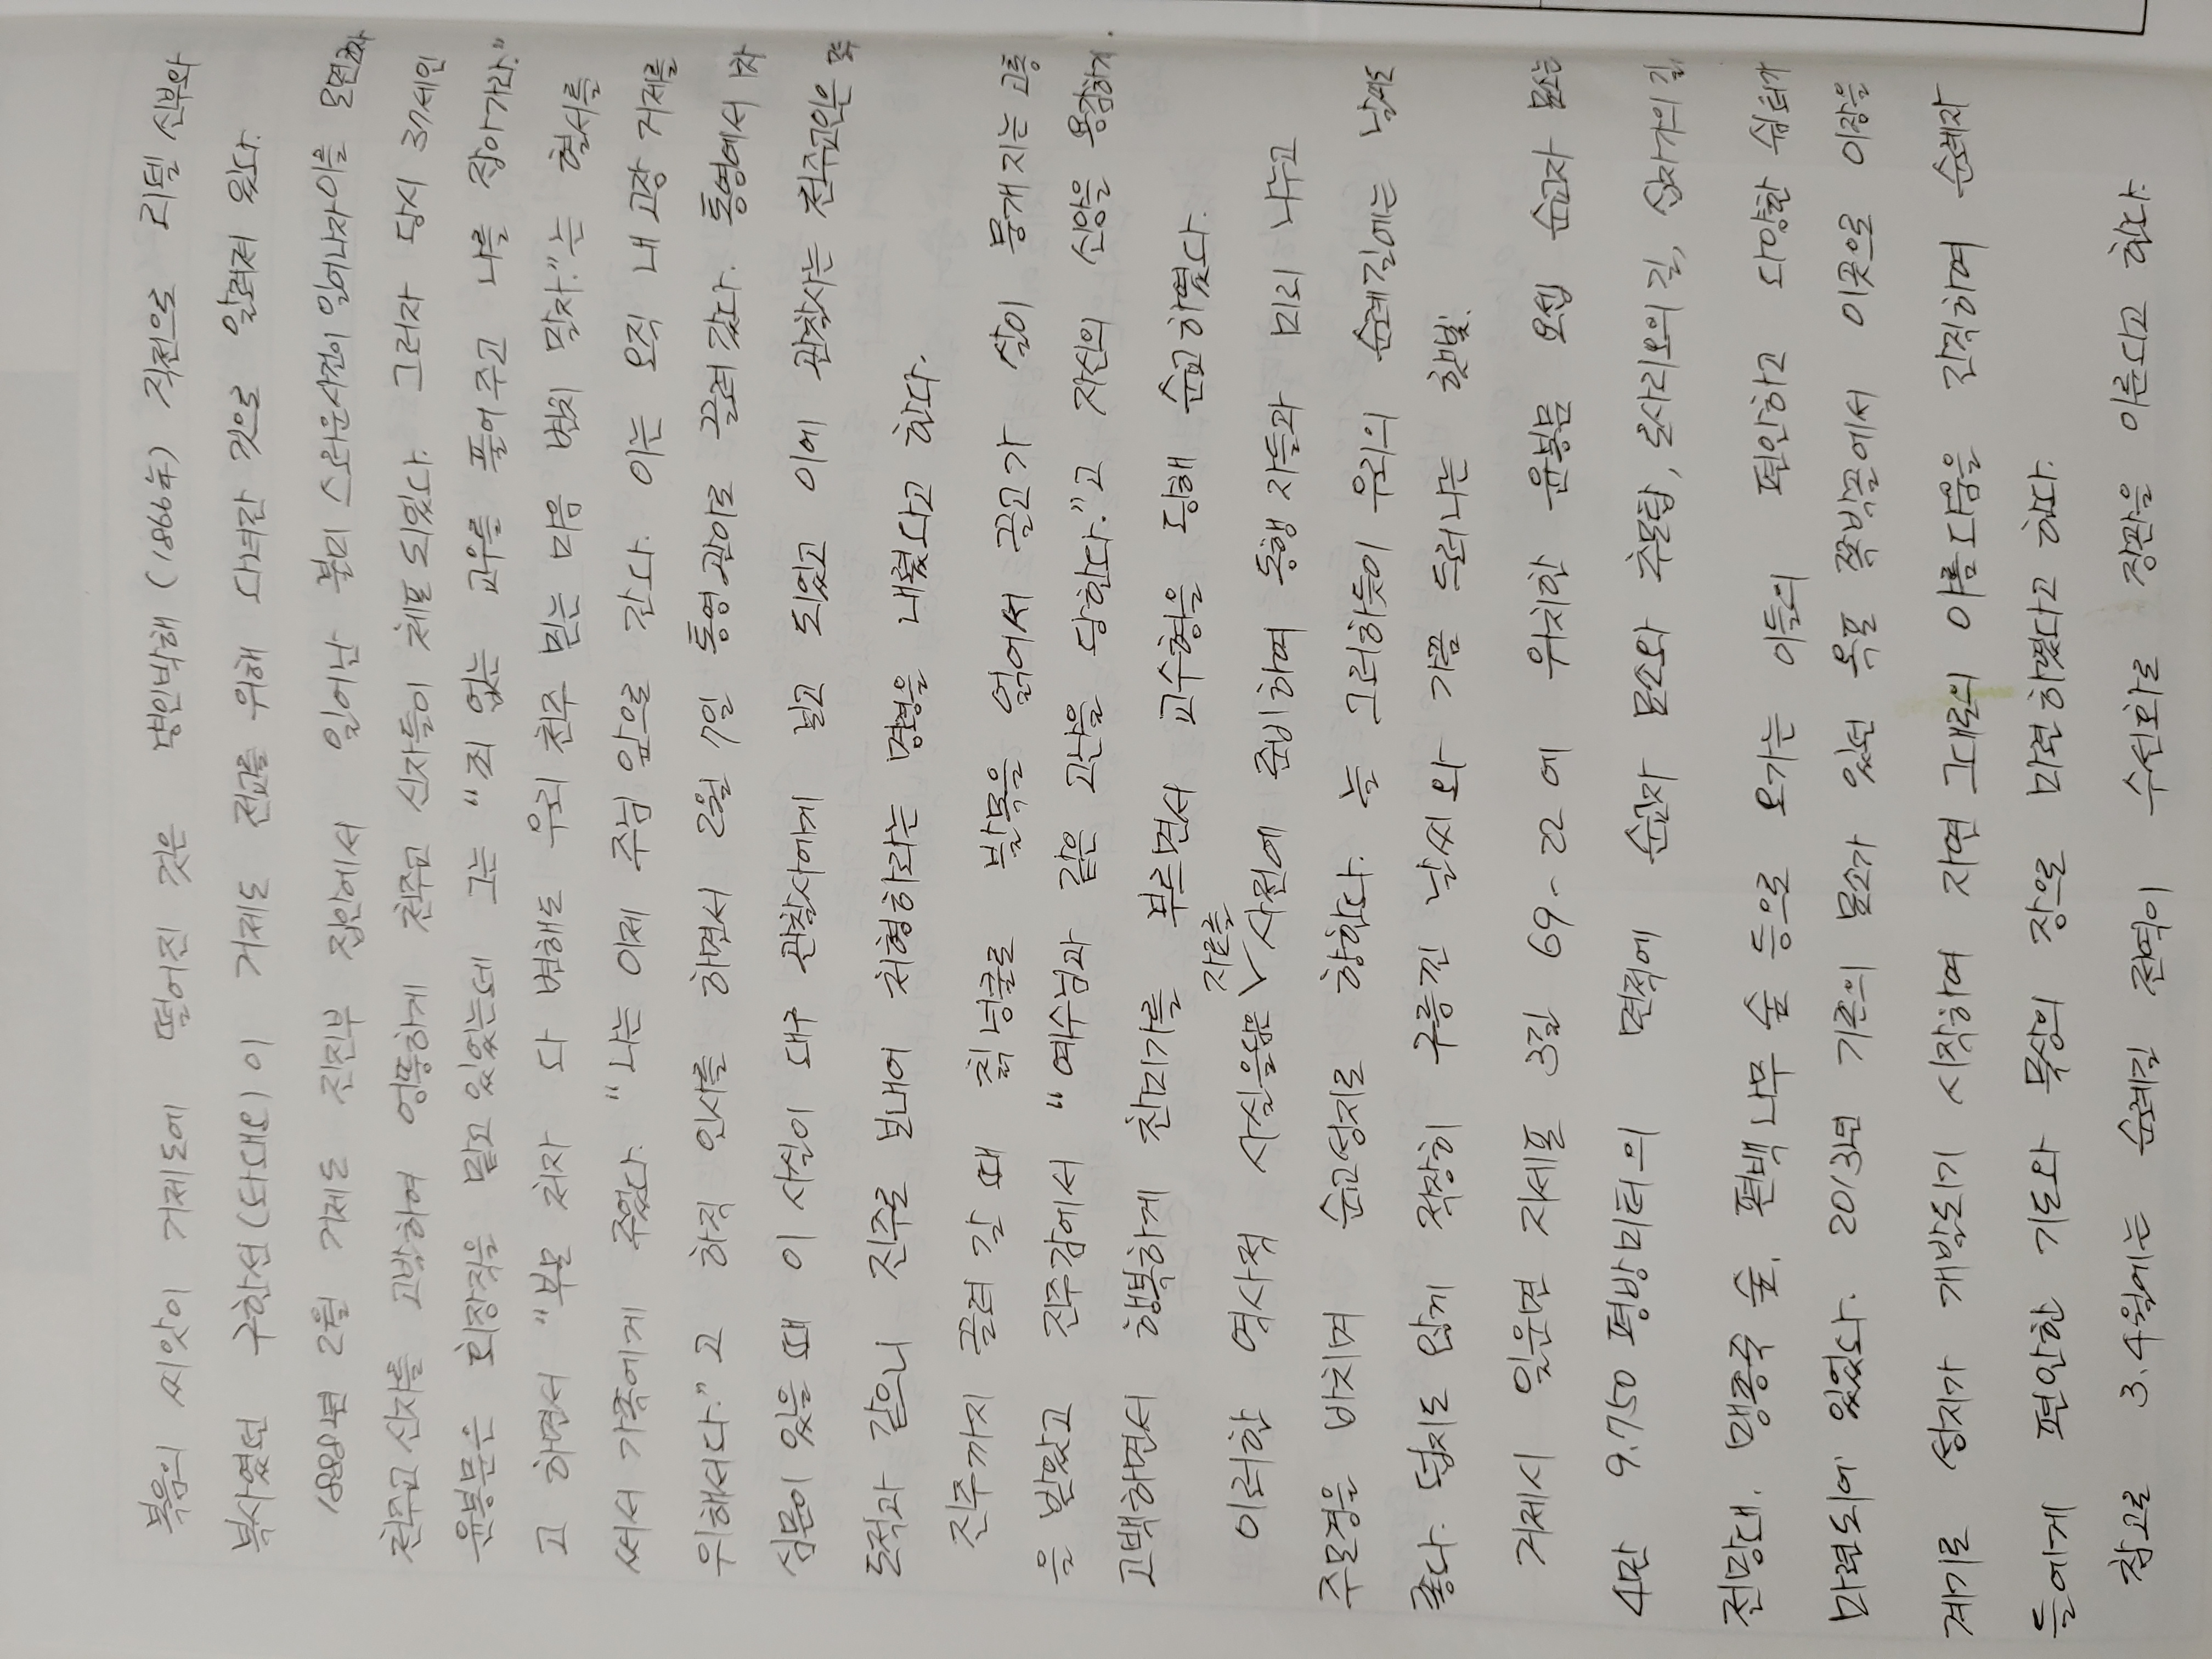 복음의 씨앗이 거제도에 떨어진 것은 병인박해 (1866年) 직전으로 리델 신부와
복사였던 구한선(타대오)이 거제도 전교를 위해 다녀간 것으로 알려져 있다.
1888년 2월 거제도 진진부 집안에서 일어난 불미스러운사건이 일어나자 이을 모면코자
천주교 신자를 고발하여 엉뚱하게 천주교 신자들이 체포 되었다. 그러자 당시 37세인
윤봉문은 회장직을 맡고 있었는데 그는 "죄 없는 교우를 풀어주고 나를 잡아가라."
고 하면서 "부모 처자 다 변해도 우리 천주 믿는 마음 변치 말자."는 혈서를
써서 가족에게 주었다. "나는 이제 주님 앞으로 간다. 이는 오직 내 고장 거제를
위해서다."고 하직 인사를 하면서 2월 7일 통영관아로 끌려 갔다. 통영에서 1차
심문이 있을 때 이 사실이 대구 관찰사에게 보고 되었고 이에 관찰사는 천주교인은 모두
도적과 같으니 진주로 보내어 처형하라는 명령을 내렸다고 한다.
진주까지 끌려 갈 때 칡넝쿨로 발목을 얽어서 끌고가 살이 뭉개지는 고통
을 받았고 진주감에서 "예수님과 같은 고난을 당한다."고 자신의 신앙을 용감하게
고백하면서 행복하게 찬미가를 부르면서 교수형을 당해 순교하였다.
자료를
이러한 역사적 사실을담은 ∨ 사전에 준비하여 동행자들과 미리 나누고
주모경을 바치며 순교성지로 향한다. 늘 그러하듯이 우리의 순례길에는 날씨도
좋다. 덥지도 않게 적당히 구름낀 날씨와 가끔 드러나는 햇빛.
거제시 일운면 지세포 3길 69-22에 위치한 윤봉문 요셉 순교자 묘소는
4만 9.750 평방미터의 면적에 순교자 묘소와 추모탑, 로사리오의 길, 십자가의 길,
전망대, 맹종죽 숲, 편백나무 숲 등으로 오가는 이들의 편안하고 다양한 쉼터가
마련되어 있었다. 2013년 기존의 묘소가 있던 옥포 쪽박골에서 이곳으로 이장을
계기로 성지가 개발되기 시작하여 자연 그대로의 아름다움을 간직하여 순례자
들에게 편안한 기도와 묵상의 장으로 마련하였다고 한다.
참고로 3.4월에는 순례길 전역이 수선화로 장관을 이룬다고 한다.